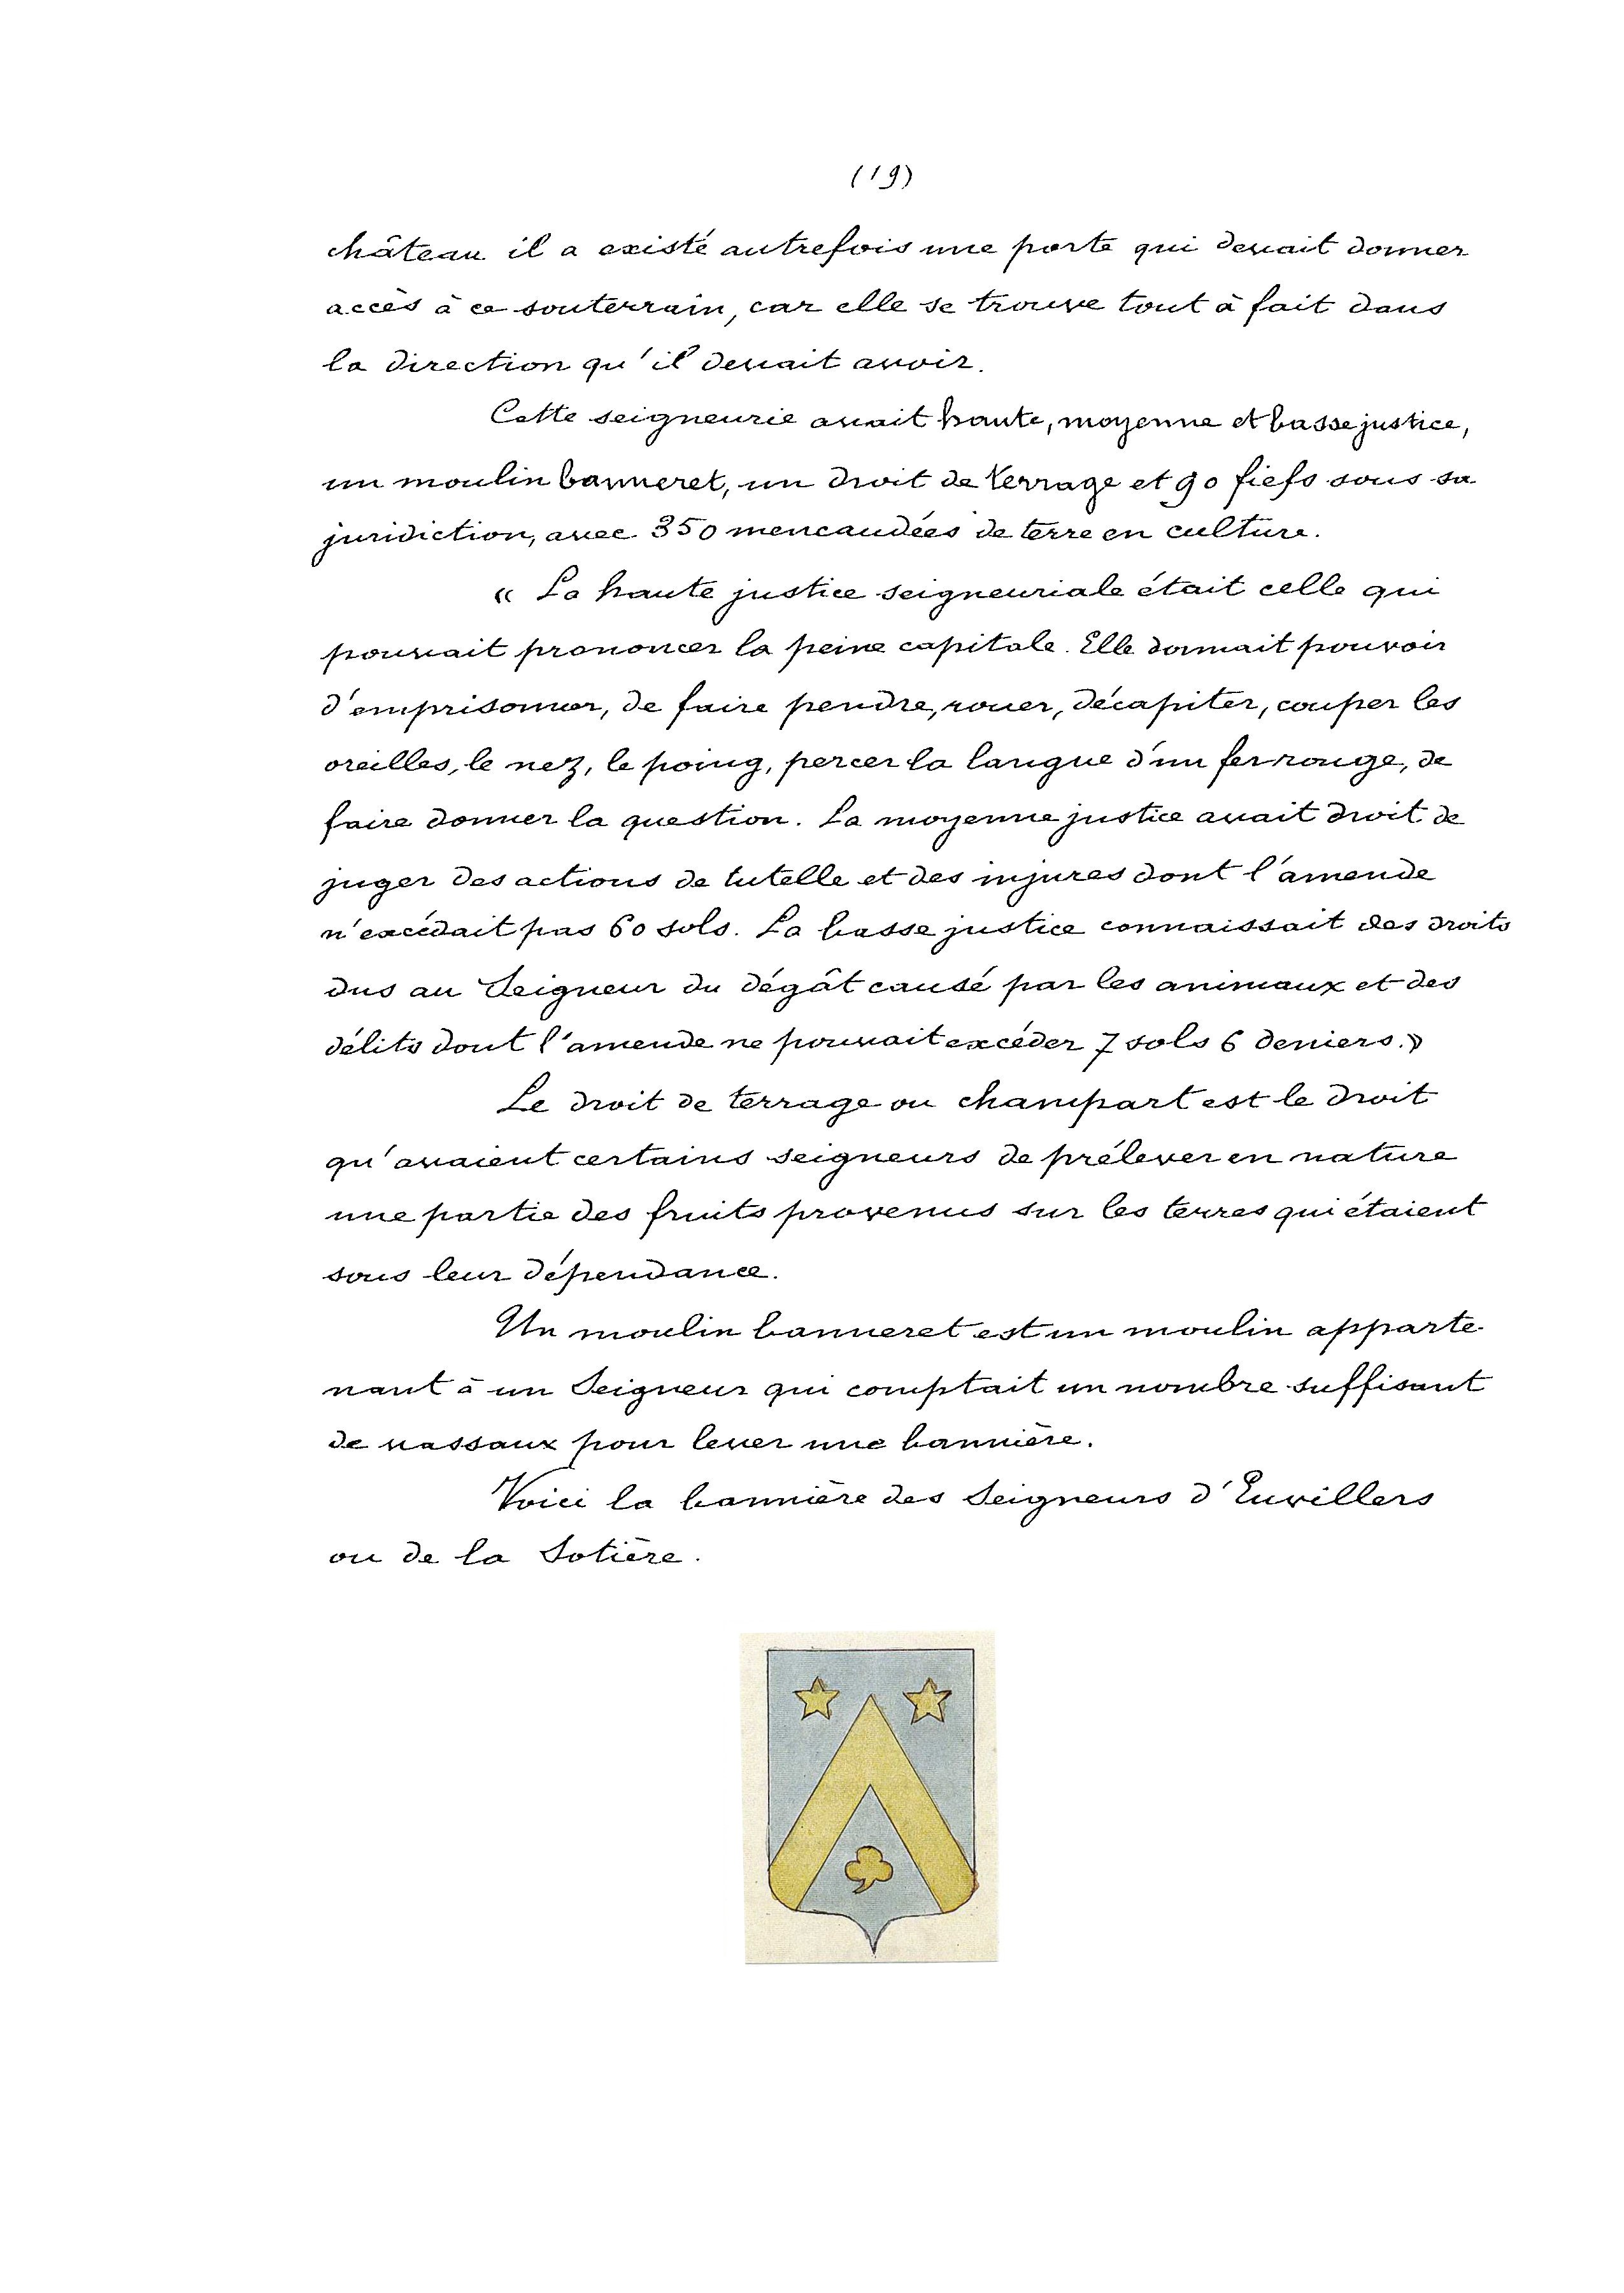 (19)
château il a existé autrefois une porte qui devait donner
accès à ce souterrain, car elle se trouve tout à fait dans
la direction qu'il devait avoir.
Cette seigneurie avait haute, moyenne et basse justice,
un moulin banneret, un droit de terrage et 90 fiefs sous sa
juridiction, avec 350 mencaudées de terre en culture.
« La haute justice seigneuriale était celle qui
pouvait prononcer la peine capitale. Elle donnait pouvoir
d'emprisonner, de faire pendre, rouer, décapiter, couper les
oreilles, le nez, le poing, percer la langue d'un fer rouge, de
faire donner la question. La moyenne justice avait droit de
juger des actions de tutelle et des injures dont l'amende
n'excédait pas 60 sols. La basse justice connaissait des droits
dus au Seigneur du dégât causé par les animaux et des
délits dont l'amende ne pouvait excéder 7 sols 6 deniers.»
Le droit de terrage ou champart est le droit
qu'avaient certains seigneurs de prélever en nature
une partie des fruits provenus sur les terres qui étaient
sous leur dépendance.
Un moulin banneret est un moulin apparte-
nant à un Seigneur qui comptait un nombre suffisant
de vassaux pour lever une bannière.
Voici la bannière des Seigneurs d'Euvillers
ou de la Sotière.